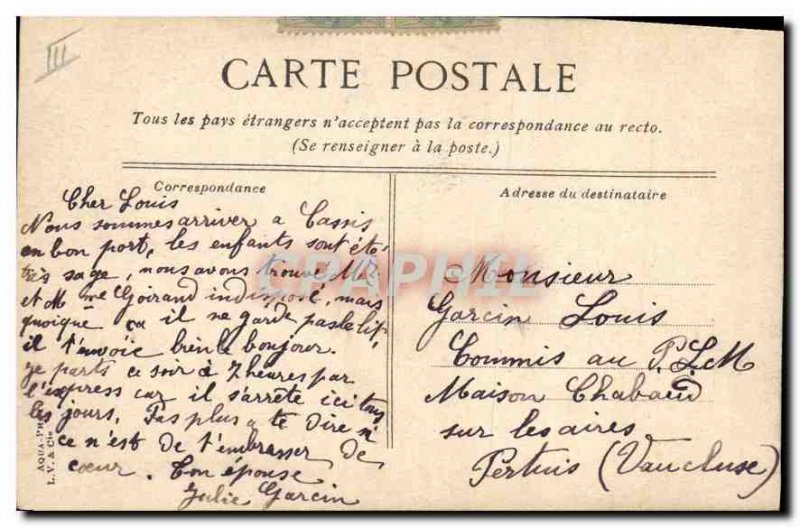 III
CARTE POSTALE
Tous les pays étrangers n'acceptent pas la correspondance au recto.
(Se renseigner à la poste.)
Correspondance
Cher Louis
Nous sommes arriver a Cassis
en bon port, les enfants sont été
très sage, nous avons trouvé Mr
et Mme Goirand indisposé, mais
quoique ça il ne garde pas le lit,
il t'envoie bien le bonjour.
je parts ce soir à 7 heures par
l'express car il s'arrête ici tous
les jours. Pas plus a te dire n'
ce n'est de t'embrasser de
cœur. Ton épouse
Julie Garcin
Adresse du destinataire
Monsieur
Garcin Louis
Commis au P.L.M
Maison Chabaud
sur les aires
Pertuis (Vaucluse)
AQUA-PH
L. V. & Cie
CPAPHIL